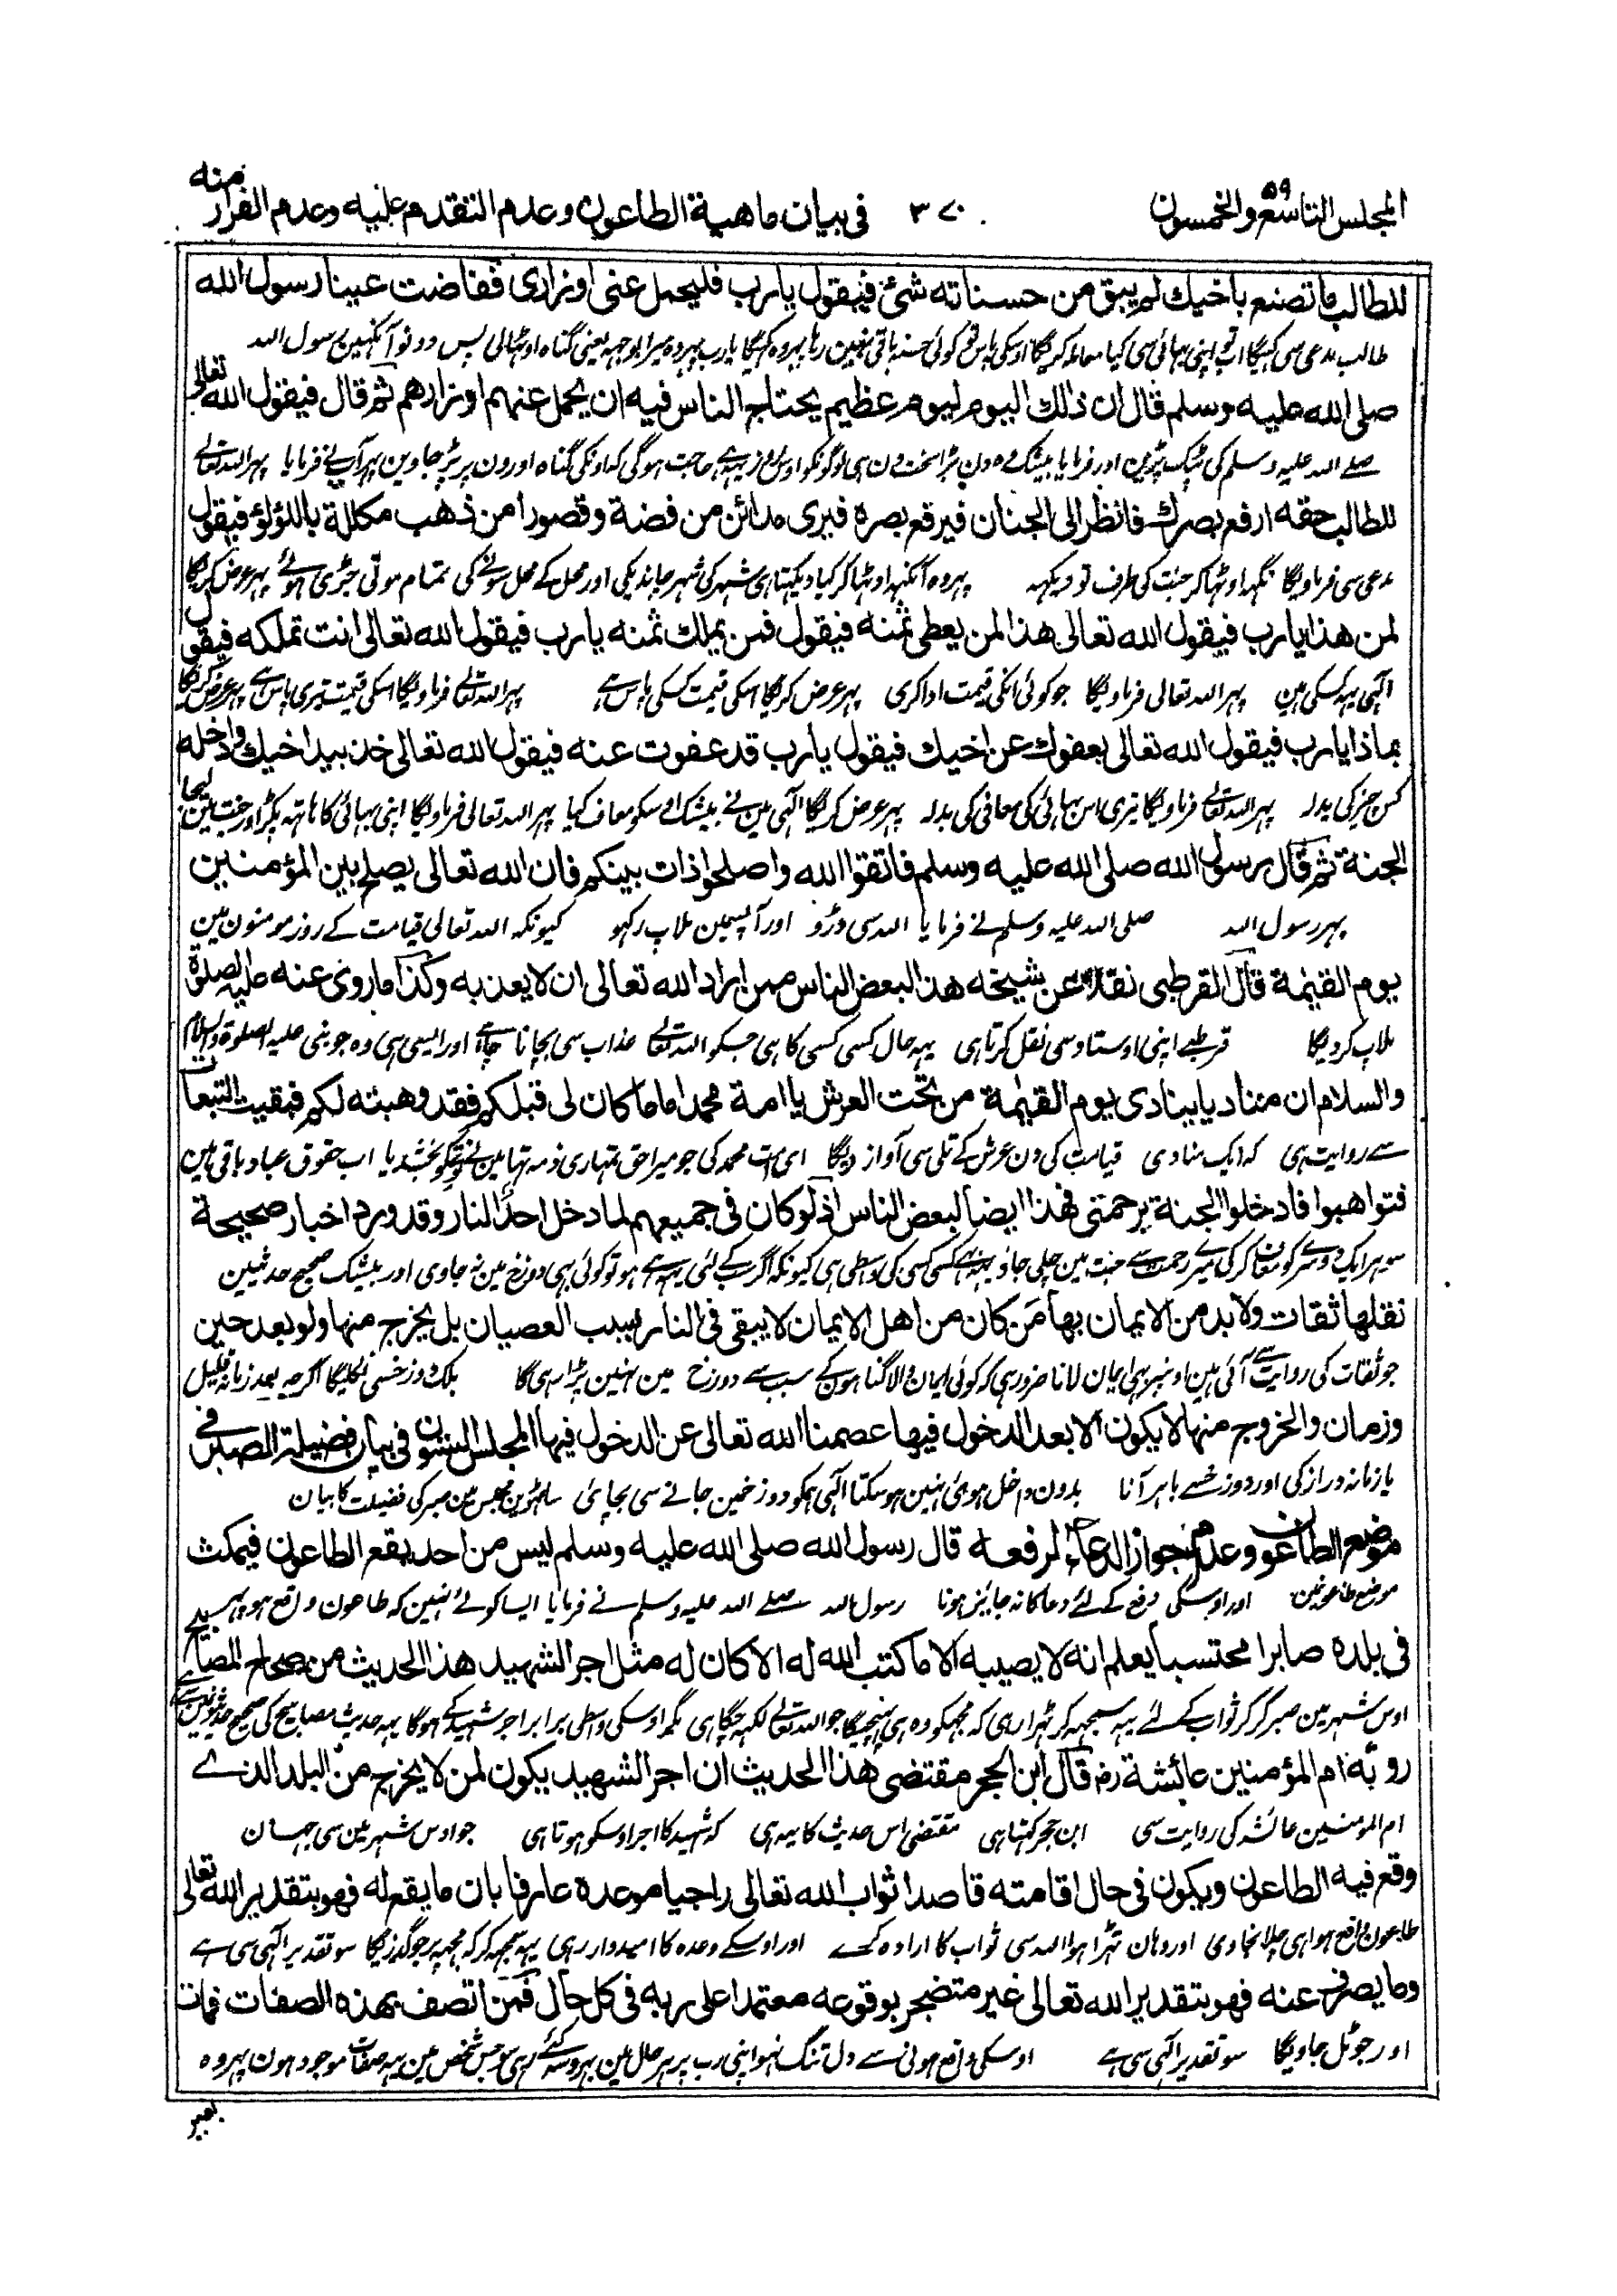 المجلس التاسع والخمسون ٥٩ ٣٧٠ في بيان ماهية الطاعون وعدم التقدم عليه وعدم الفرار منه
للطالب ما تصنع باخيك لم يبق من حسناته شئ فيقول يا رب فليحمل عنى اوزارى ففاضت عينا رسول الله
طالب مدعی سی کہیگا اب تو اپنی بہائی سی کیا معاملہ کریگا اوسکی پاس تو کوئی حسنہ باقی نہین رہا پہر وہ کہیگا یا رب پہر وہ میرا بوجہہ یعنی گناہ اوٹہالی پس دونو آنکہین رسول اللہ
صلى الله عليه وسلم قال ان ذلك اليوم ليوم عظيم يحتاج الناس فيه ان يحمل عنهم اوزارهم ثم قال فيقول الله تعالى
صلے اللہ علیہ وسلم کی ٹپک پڑین اور فرمایا بیشک وہ دن بڑا سخت دن ہی لوگونکو اوس روز یہہ حاجت ہوگی کہ اونکی گناہ اورون پر پڑ جاوین پہر آپنے فرمایا پہر اللہ تعالے
للطالب حقه ارفع بصرك فانظر الى الجنان فيرفع بصره فيرى مدائن من فضة وقصورا من ذهب مكللة باللؤلؤ فيقول
مدعی سی فرماویگا نگہہ اوٹہا کر جنت کی طرف تو دیکہہ پہر وہ آنکہہ اوٹہا کر کیا دیکہتا ہی شہر کی شہر چاندیکی اور محل کے محل سونے کی تمام موتی جڑی ہوئے پہر عرض کریگا
لمن هذا يا رب فيقول الله تعالى هذا لمن يعطى ثمنه فيقول فمن يملك ثمنه يا رب فيقول الله تعالى انت تملكه فيقول
الہی یہہ کسکی ہین پہر اللہ تعالی فرماویگا جو کوئی انکی قیمت ادا کری پہر عرض کریگا اسکی قیمت کسکی پاس ہے پہر اللہ تعالے فرماویگا اسکی قیمت تیری پاس ہے پہر عرض کریگا
بماذا يا رب فيقول الله تعالى بعفوك عن اخيك فيقول يا رب قد عفوت عنه فيقول الله تعالى خذ بيد اخيك وادخله
کس چیز کی بدلہ پہر اللہ تعالے فرماویگا تیری اس بہائی کی معافی کی بدلہ پہر عرض کریگا الہی مین نے بیشک اسکو معاف کیا پہر اللہ تعالی فرماویگا اپنی بہائی کا ہاتہہ پکڑ اور جنت مین لیجا
الجنة ثم قال رسول الله صلى الله عليه وسلم فاتقوا الله واصلحوا ذات بينكم فان الله تعالى يصلح بين المؤمنين
پہر رسول اللہ صلی اللہ علیہ وسلم نے فرمایا اللہ سی ڈرو اور آپسمین ملاپ رکہو کیونکہ اللہ تعالی قیامت کے روز مومنون مین
يوم القيمة قال القرطبى نقلا عن شيخه هذا لبعض الناس ممن اراد الله تعالى ان لا يعذبه وكذا ما روى عنه عليه الصلوة
ملاپ کردیگا قرطبے اپنی اوستاد سی نقل کرتا ہی یہہ حال کسی کسی کا ہی جسکو اللہ تعالے عذاب سی بچانا چاہے اور ایسی ہی وہ جو نبی علیہ الصلوة والسلام
والسلام ان مناديا ينادى يوم القيمة من تحت العرش يا امة محمد اما ما كان لى قبلكم فقد وهبته لكم فبقيت التبعات
سے روایت ہی کہ ایک منادی قیامت کی دن عرش کے تلی سی آواز دیگا ای امت محمد کی جو میرا حق تمہاری ذمہ تہا مین نے تمکو بخشدیا اب حقوق عباد باقی ہین
فتواهبوا فادخلوا الجنة برحمتى فهذا ايضا لبعض الناس اذ لو كان فى جميعهم لما دخل احد النار وقد ورد اخبار صحيحة
سو پہر ایک دوسرکو معاف کر کی میری رحمت سے جنت مین چلی جاؤ یہہ بہی کسی کسی کی واسطی ہی کیونکہ اگر سب کے لئی یہہ ہے ہو تو کوئی بہی دوزخ مین نہ جاوی اور بیشک صحیح حدیثین
نقلها ثقات ولا بد من الايمان بها من كان من اهل الايمان لا يبقى فى النار بسبب العصيان بل يخرج منها ولو بعد حين
جو ثقات کی روایت سے آئی ہین اونپر بہی ایمان لانا ضرور ہی کہ کوئی ایمان والا گناہون کے سبب سے دوزخ مین نہین پڑا رہی گا بلکہ دوزخ سی نکلیگا اگرچہ بعد زمانہ قلیل
وزمان والخروج منها لا يكون الا بعد الدخول فيها عصمنا الله تعالى عن الدخول فيها المجلس الستون فى بيان فضيلة الصبر فى
یا زمانہ دراز کی اور دوزخ سے باہر آنا بدون داخل ہوئی نہین ہوسکتا الہی ہمکو دوزخ مین جانے سی بچائی ساٹہوین مجلس مین صبر کی فضیلت کا بیان
موضع الطاعون وعدم جواز الدعاء لرفعه قال رسول الله صلى الله عليه وسلم ليس من احد يقع الطاعون فيمكث
موضع طاعونمین اور اوسکی رفع کے لئے دعا کا نہ جائز ہونا رسول اللہ صلے اللہ علیہ وسلم نے فرمایا ایسا کوئے نہین کہ طاعون واقع ہو وہ
فى بلده صابرا محتسبا يعلم انه لا يصيبه الا ما كتب الله له الا كان له مثل اجر الشهيد هذا الحديث من صحاح المصابيح
اوس شہر مین صبر کر کر ثواب کے لئے یہہ سمجہہ کر ٹہرا رہی کہ مجہکو وہ ہی پہنچیگا جو اللہ تعالے لکہہ چکا ہی مگر اوسکی واسطی برابر اجر شہید کے ہوگا یہہ حدیث مصابیح کی صحیح حدیثونمین سے
روته ام المؤمنين عائشة رض قال ابن الحجر مقتضى هذا الحديث ان اجر الشهيد يكون لمن لا يخرج من البلد الذے
ام المومنین عائشہ کی روایت سی ابن حجر کہتا ہی مقتضی اس حدیث کا یہہ ہی کہ شہید کا اجر اوسکو ہوتا ہی جو اوس شہر مین سی جہان
وقع فيه الطاعون ويكون فى حال اقامته قاصدا ثواب الله تعالى راجيا موعده عارفا بان ما يقع له فهو بتقدير الله تعالى
طاعون واقع ہوا ہی چلا نجاوی اور وہان ٹہرا ہوا اللہ سی ثواب کا ارادہ کرے اور اوسکے وعدہ کا امیدوار رہی یہہ سمجہہ کر کہ مجہہ پر جو گذریگا سو تقدیر الہی سی ہے
وما يصرف عنه فهو بتقدير الله تعالى غير متضجر بوقوعه معتمدا على ربه فى كل حال فمن اتصف بهذه الصفات فمات
اور جو ٹل جاویگا سو تقدیر الہی سی ہے اوسکی واقع ہونی سے دل تنگ نہو اپنی رب پر ہر حال مین بہروسہ کئے رہی سو جس شخص مین یہہ صفات موجود ہون پہر وہ
بغير